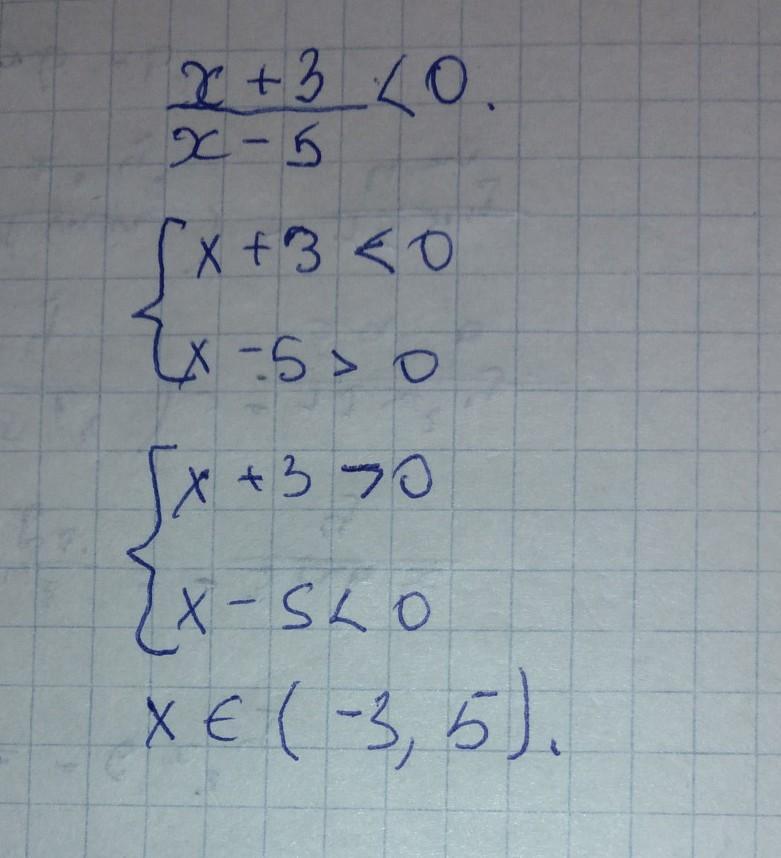 x + 3
x - 5 < 0.
{ x + 3 < 0
x - 5 > 0
{ x + 3 > 0
x - 5 < 0
x ∈ (-3, 5).